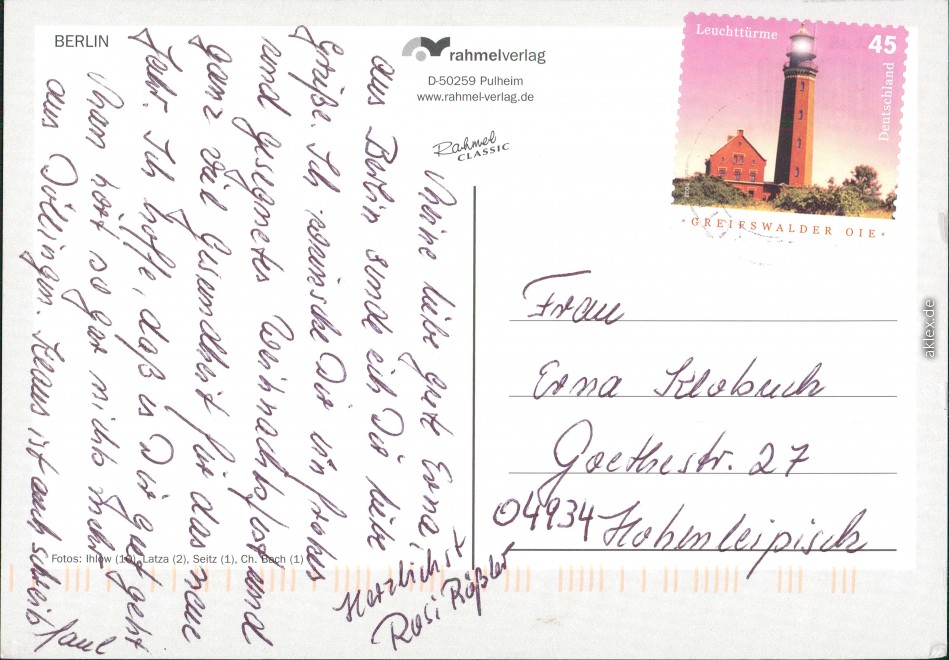 BERLIN
rahmelverlag
D-50259 Pulheim
www.rahmel-verlag.de
Rahmel
CLASSIC
Leuchttürme
45
Deutschland
*GREIFSWALDER OIE*
Meine liebe gute Erna,
aus Berlin sende ich Dir liebe
Grüße. Ich wünsche Dir ein frohes
und gesegnetes Weihnachtsfest und
ganz viel Gesundheit für das neue
Jahr. Ich hoffe, daß es Dir gut geht
Man hört so gar nichts mehr
aus Dillingen. Klaus ist auch schreibfaul
Herzlichst
Rosi Rößler
Frau
Erna Klobuch
Goethestr. 27
04934 Hohenleipisch
Fotos: Ihlow (10), Latza (2), Seitz (1), Ch. Bach (1)
aklex.de